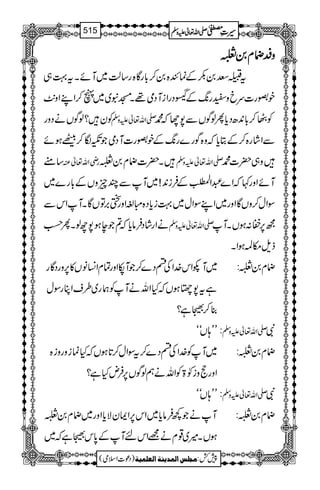 سیرتِ مصطفیٰ صلی اللہ تعالیٰ علیہ وسلم 515
وفد ضمام بن ثعلبہ
یہ قبیلہ سعد بن بکر کے نمائندہ بن کر بارگاہ رسالت میں آئے۔ یہ بہت ہی
خوبصورت سرخ و سفید رنگ کے گیسو دراز آدمی تھے۔ مسجد نبوی میں پہنچ کر اپنے اونٹ
کو بٹھا کر باندھ دیا پھر لوگوں سے پوچھا کہ محمد صلی اللہ تعالیٰ علیہ وسلم کون ہیں؟ لوگوں نے دور
سے اشارہ کر کے بتایا کہ وہ گورے رنگ کے خوبصورت آدمی جو تکیہ لگا کر بیٹھے ہوئے
ہیں وہی حضرت محمد صلی اللہ تعالیٰ علیہ وسلم ہیں۔ حضرت ضمام بن ثعلبہ رضی اللہ تعالیٰ عنہ سامنے
آئے اور کہا کہ اے عبدالمطلب کے فرزند! میں آپ سے چند چیزوں کے بارے میں
سوال کروں گا اور میں اپنے سوال میں بہت زیادہ مبالغہ اور سختی برتوں گا۔ آپ اس سے
مجھ پر خفا نہ ہوں۔ آپ صلی اللہ تعالیٰ علیہ وسلم نے ارشاد فرمایا کہ تم جو چاہو پوچھ لو۔ پھر حسب
ذیل مکالمہ ہوا۔
ضمام بن ثعلبہ: میں آپ کو اس خدا کی قسم دے کر جو آپ کا اور تمام انسانوں کا پروردگار
ہے یہ پوچھتا ہوں کہ کیا اللہ نے آپ کو ہماری طرف اپنا رسول
بنا کر بھیجا ہے؟
نبی صلی اللہ تعالیٰ علیہ وسلم: ’’ہاں‘‘
ضمام بن ثعلبہ: میں آپ کو خدا کی قسم دے کر یہ سوال کرتا ہوں کہ کیا نماز و روزہ
اور حج و زکوٰۃ کو اللہ نے ہم لوگوں پر فرض کیا ہے؟
نبی صلی اللہ تعالیٰ علیہ وسلم: ’’ہاں‘‘
ضمام بن ثعلبہ: آپ نے جو کچھ فرمایا میں اس پر ایمان لایا اور میں ضمام بن ثعلبہ
ہوں۔ میری قوم نے مجھے اس لئے آپ کے پاس بھیجا ہے کہ میں
پیش کش: مجلس المدینۃ العلمیۃ (دعوت اسلامی)